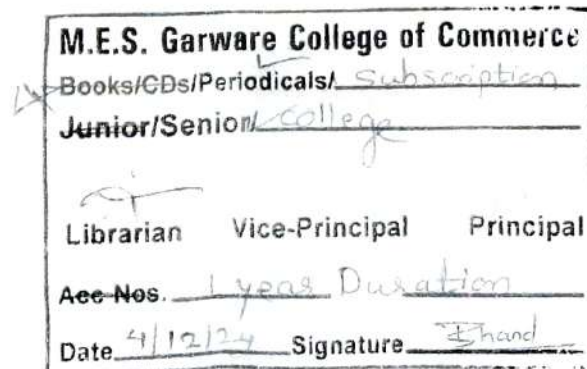 M.E.S. Garware College of Commerce
Books/CDs/Periodicals/ Subscription
Junior/Senior/ College
Librarian Vice-Principal Principal
Acc Nos. 1 year Duration
Date 4/12/24 Signature